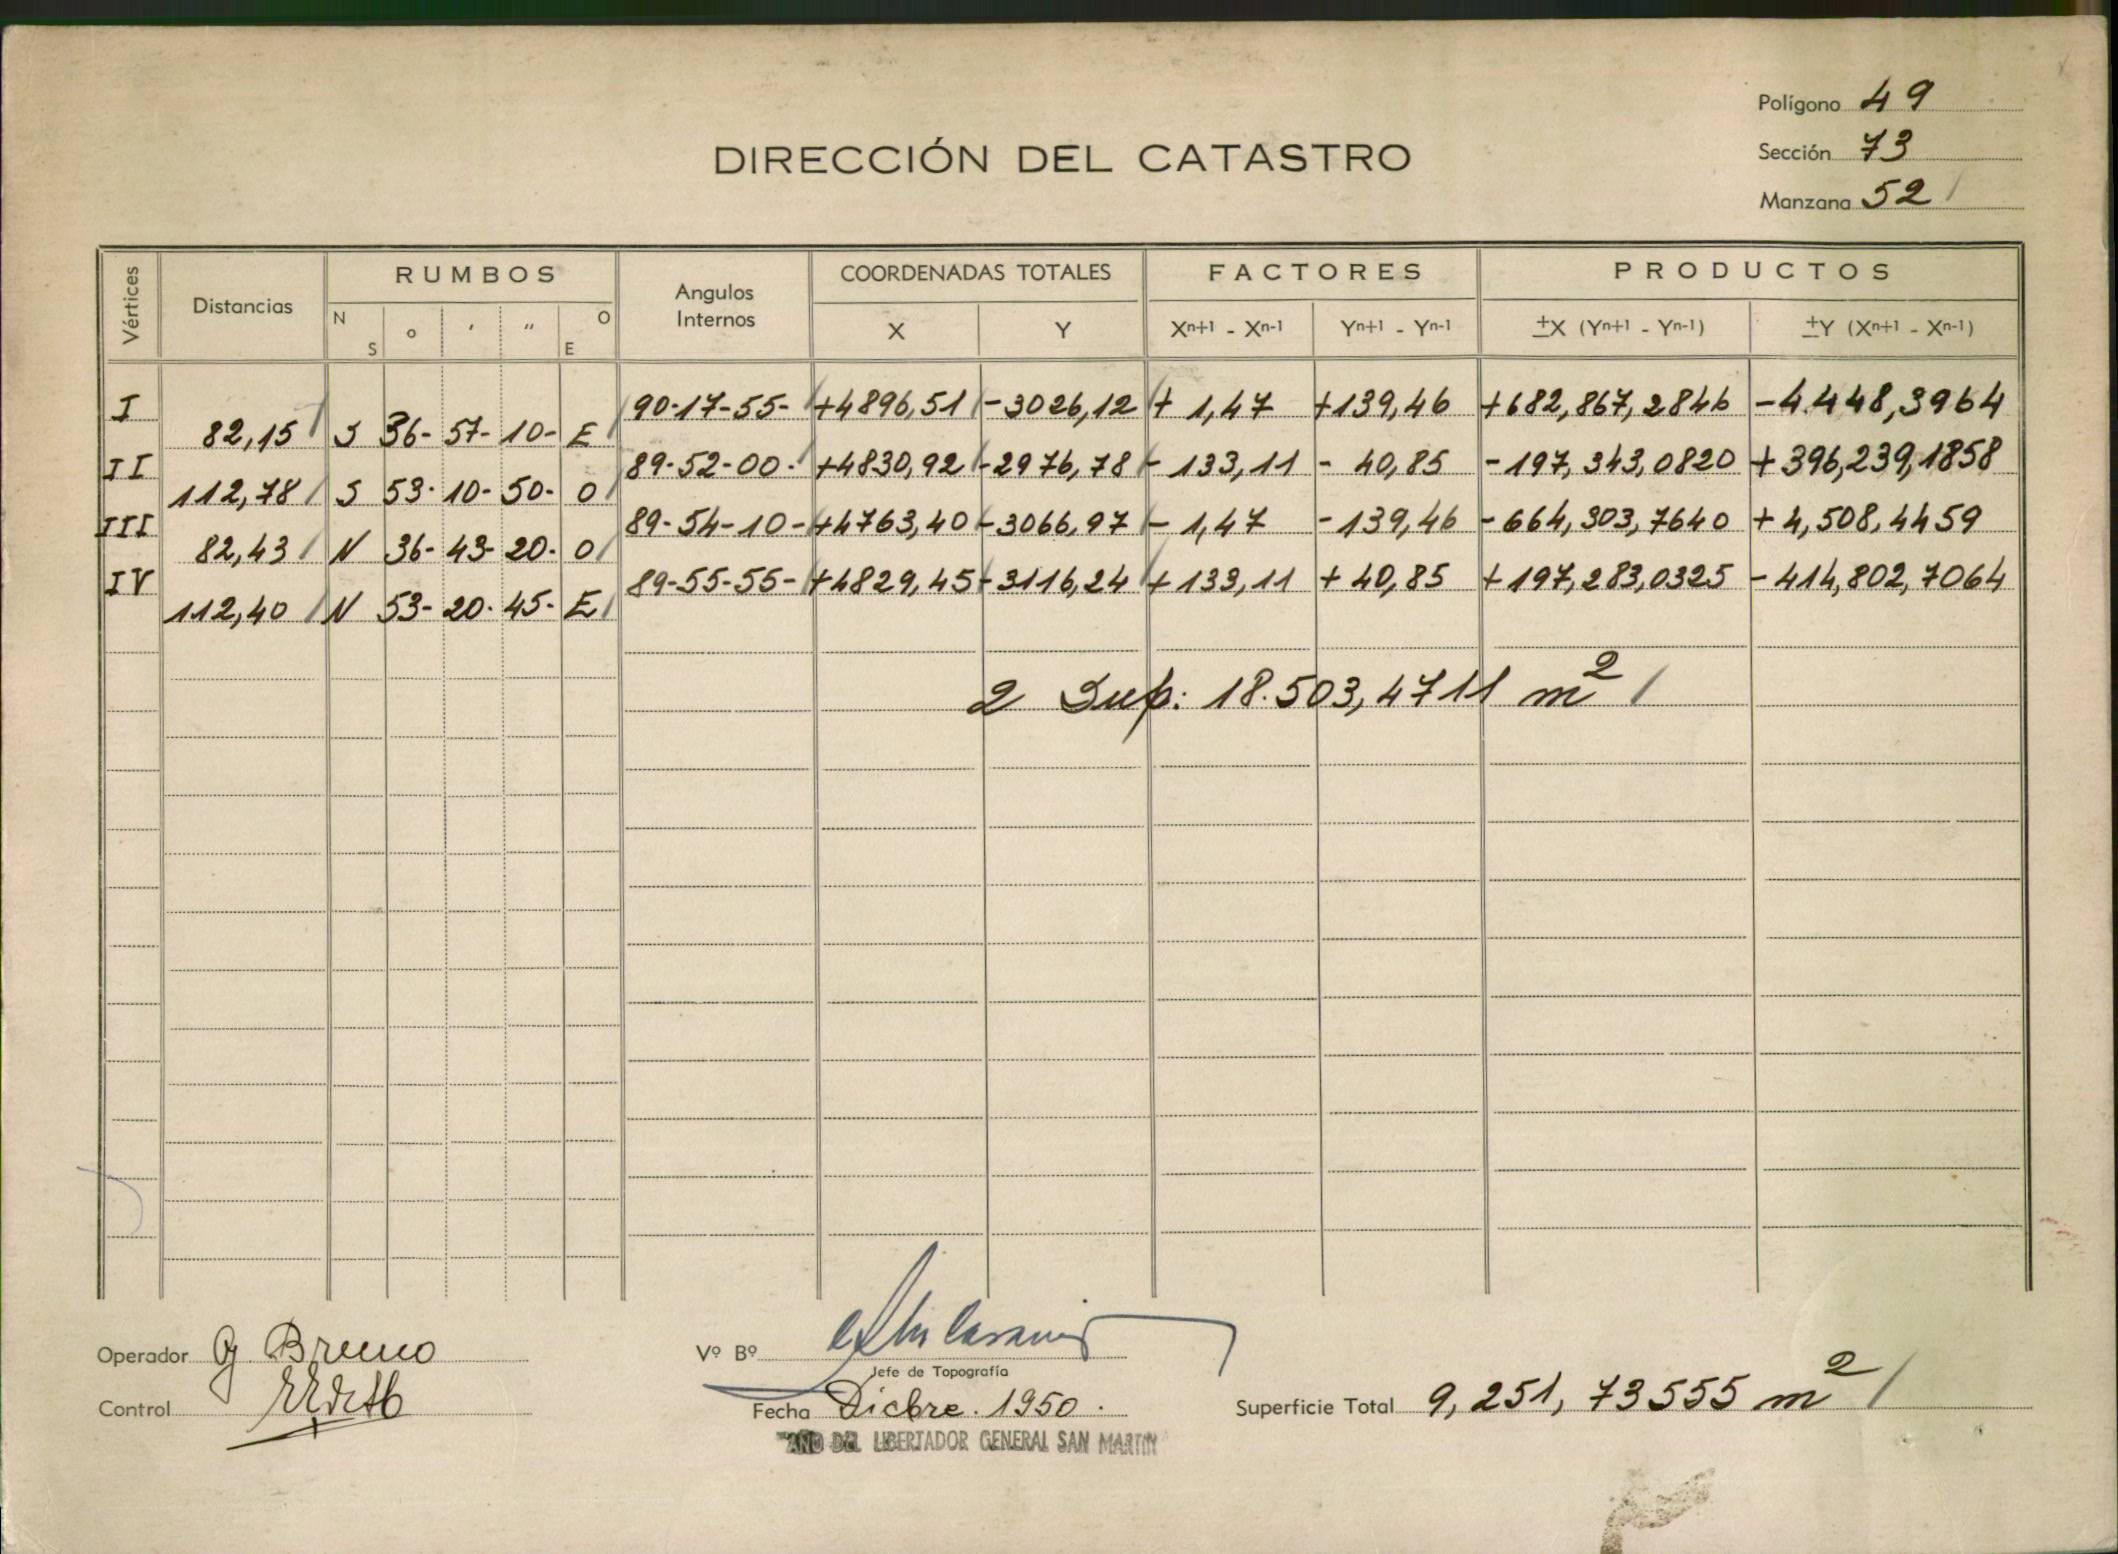 Polígono 49
DIRECCIÓN DEL CATASTRO
Sección 73
Manzana 52
Vértices Distancias RUMBOS Angulos Internos COORDENADAS TOTALES FACTORES PRODUCTOS
N S ° ′ ″ O E X Y Xn+1 - Xn-1 Yn+1 - Yn-1 ±X (Yn+1 - Yn-1) ±Y (Xn+1 - Xn-1)
I 90-17-55- +4896,51 -3026,12 + 1,47 +139,46 +682,867,2846 -4.448,3964
82,15 S 36- 57- 10- E
II 89-52-00- +4830,92 -2976,78 - 133,11 - 40,85 -197,343,0820 +396,239,1858
112,78 S 53- 10- 50- O
III 89-54-10- +4763,40 -3066,97 - 1,47 -139,46 -664,303,7640 +4,508,4459
82,43 N 36- 43- 20- O
IV 89-55-55- +4829,45 -3116,24 + 133,11 + 40,85 +197,283,0325 -414,802,7064
112,40 N 53- 20- 45- E
2 Sup: 18.503,4711 m²
Operador G Bruno
Vº Bº
Jefe de Topografía
Control
Fecha Dicbre. 1950.
Superficie Total 9,251,73555 m²
"AÑO DEL LIBERTADOR GENERAL SAN MARTIN